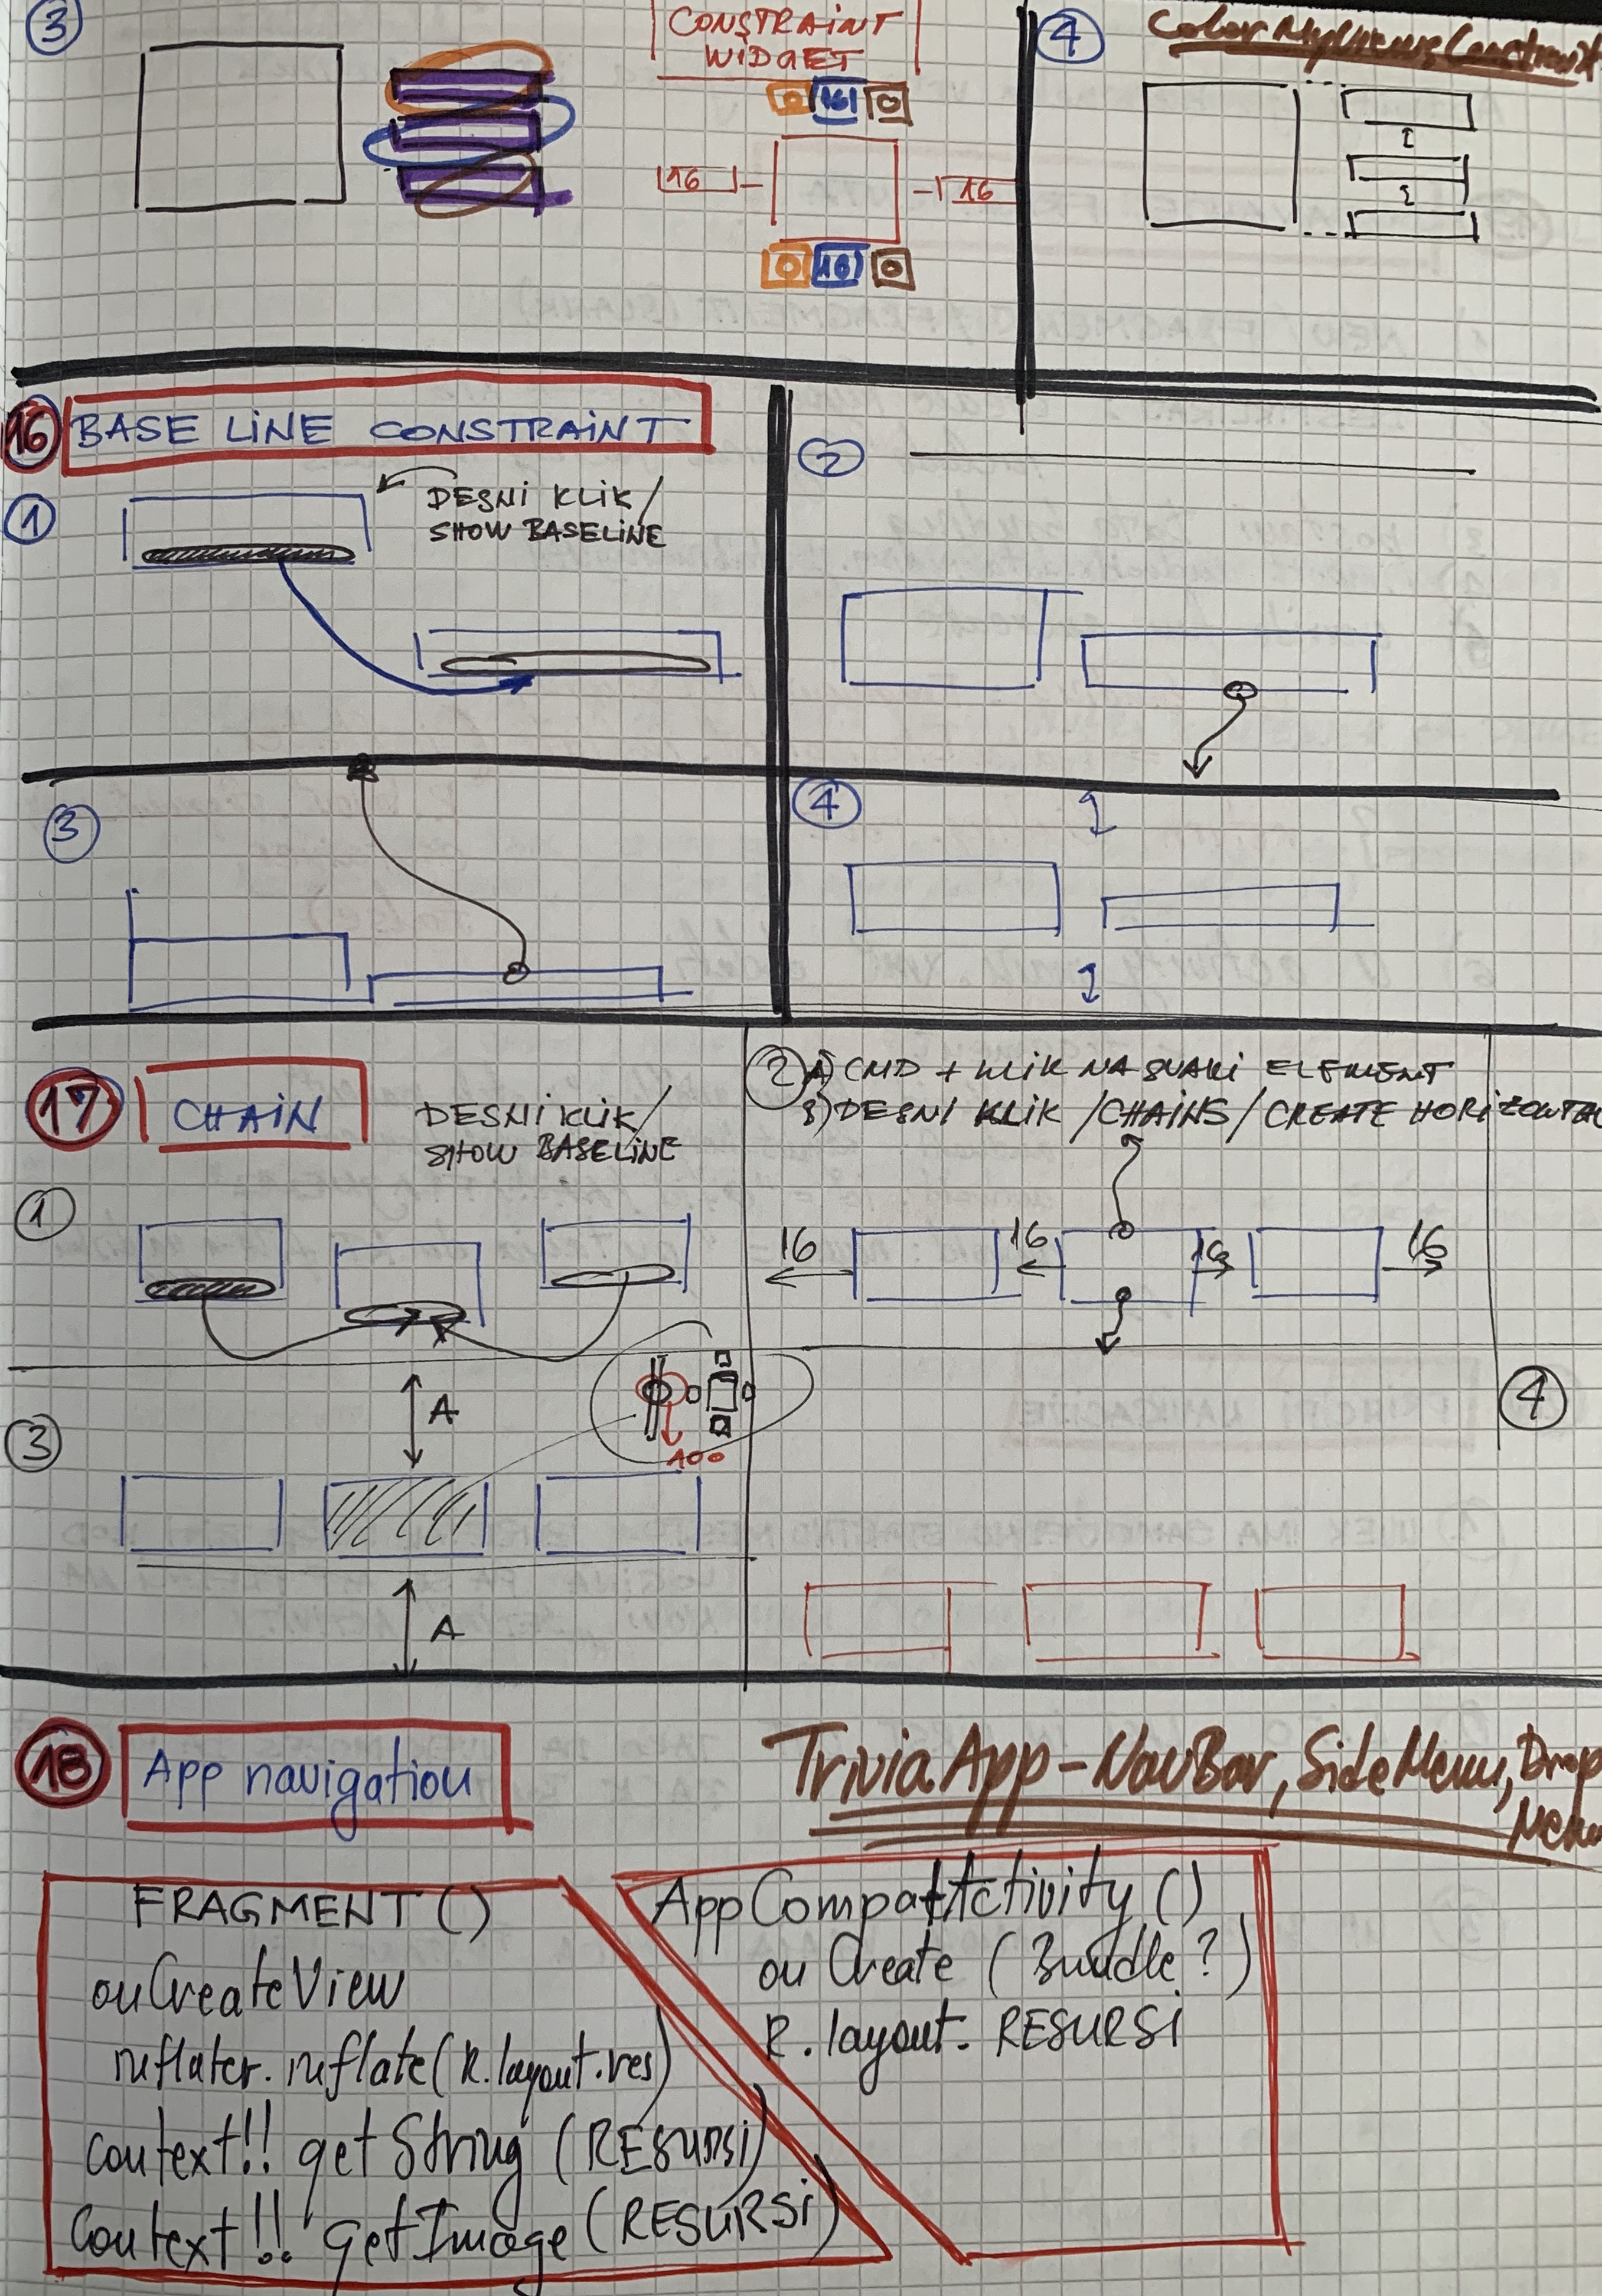 3
CONSTRAINT
WIDGET
0 16 0
16
16
0 16 0
4
16 BASE LINE CONSTRAINT
1
DESNI KLIK/
SHOW BASELINE
2
3
4
17 CHAIN
DESNI KLIK/
SHOW BASELINE
1
2 A) CMD + KLIK NA SVAKI ELEMENT
B) DESNI KLIK /CHAINS/CREATE HORIZONTAL
16 16 16 16
3
A
100
A
4
18 App navigation
Trivia App - NavBar, SideMenu, Drop
Menu
FRAGMENT()
onCreateView
inflater.inflate(R.layout.res)
context!! getString (RESURSI)
Context!!. getImage (RESURSI)
AppCompatActivity ()
onCreate (Bundle?)
R.layout. RESURSI